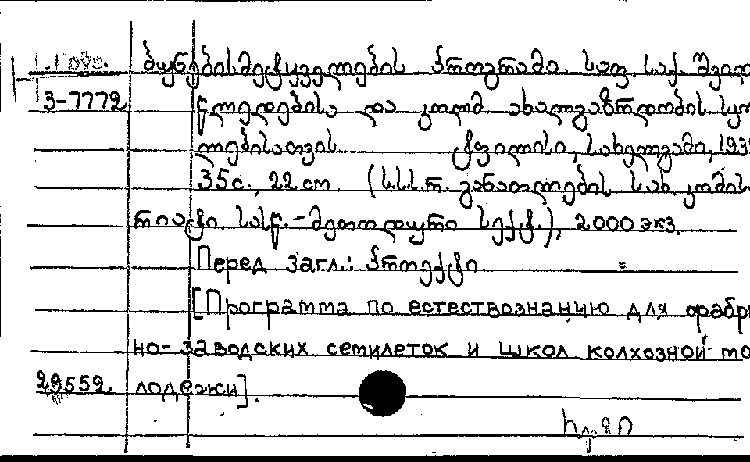 ბუნებისმეტყველების პროგრამა საფ. საქ. შვიდ
3-7772 წლედებისა და კოლმ. ახალგაზრდობის სკო
ლებისათვის. ტფილისი, სახელგამი, 193
35с., 22 cm. (ს.ს.ს.რ. განათლების სახ. კომისა
რიატი. სასწ.-მეთოდური სექტ.), 2000 экз.
Перед загл.: პროექტი
[Программа по естествознанию для фабри
но-заводских семилеток и школ колхозной мо
29559. лодежи].